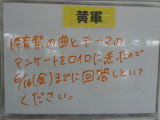 黄軍
体育祭の曲とテーマの
アンケートをロイロに送ったので
6/16(金)までに回答しといて
ください。